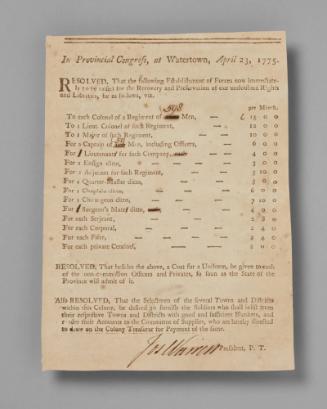 In Provincial Congress, at Watertown, April 23, 1775.
RESOLVED, That the following Establishment of Forces now immediate-
ly to be raised for the Recovery and Preservation of our undoubted Rights
and Liberties, be as follows, viz.
per Month.
598
To each Colonel of a Regiment of Men, — £ 15 0 0
To 1 Lieut. Colonel of such Regiment, 12 0 0
To 1 Major of such Regiment, 10 0 0
For 1 Captain of Men, including Officers, 6 0 0
For Lieutenant for such Company, 4 0 0
For 1 Ensign ditto, 3 0 0
For 1 Adjutant for such Regiment, 0 0
For 1 Quarter-Master ditto, 0 0
For 1 Chaplain ditto, 6 0 0
For 1 Chirurgeon ditto, 10 0
For Surgeon's Mates ditto, 0 0
For each Serjeant, 0
For each Corporal, 0
For each Fifer, 0
For each private Centinel, 0 0
RESOLVED, That besides the above, a Coat for a Uniform, be given to each
of the non-commission Officers and Privates, so soon as the State of the
Province will admit of it.
Also RESOLVED, That the Selectmen of the several Towns and Districts
within this Colony, be desired to furnish the Soldiers who shall inlist from
their respective Towns and Districts with good and sufficient Blankets, and
render their Accounts to the Committee of Supplies, who are hereby directed
to draw on the Colony Treasurer for Payment of the same.
Jos Warren President, P. T.